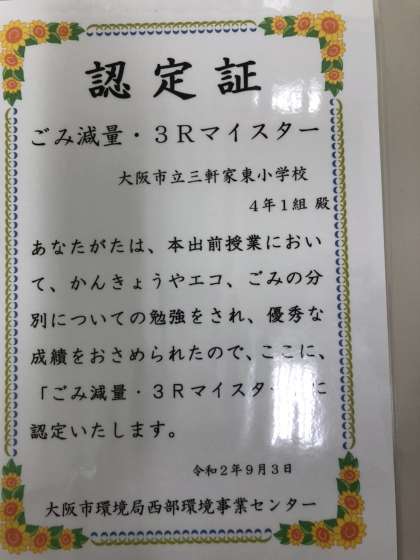 認定証
ごみ減量・3Rマイスター
大阪市立三軒家東小学校
4年1組 殿
あなたがたは、本出前授業におい
て、かんきょうやエコ、ごみの分
別についての勉強をされ、優秀な
成績をおさめられたので、ここに、
「ごみ減量・3Rマイスター」に
認定いたします。
令和2年9月3日
大阪市環境局西部環境事業センター